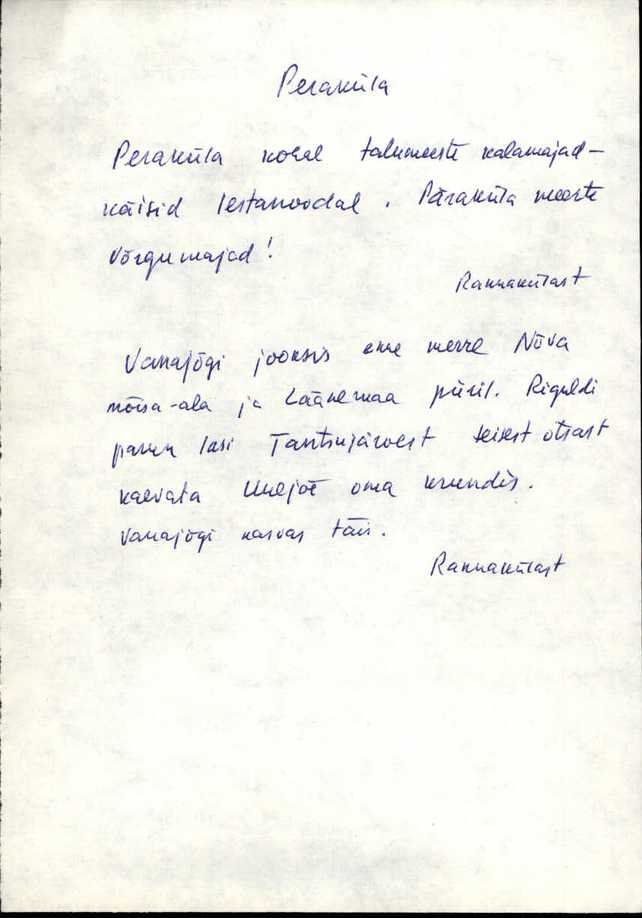 Peraküla
Peraküla kohal talumeeste kalamajad –
käisid lestanoodal. Päraküla meeste
võrgumajad!
Rannakülast
Vanajõgi jooksis enne merre Nõva
mõisa-ala ja Läänemaa piiril. Riguldi
parun lasi Tantsujärvest teisest otsast
kaevata Uuejõe oma krundis.
Vanajõgi kasvas täis.
Rannakülast